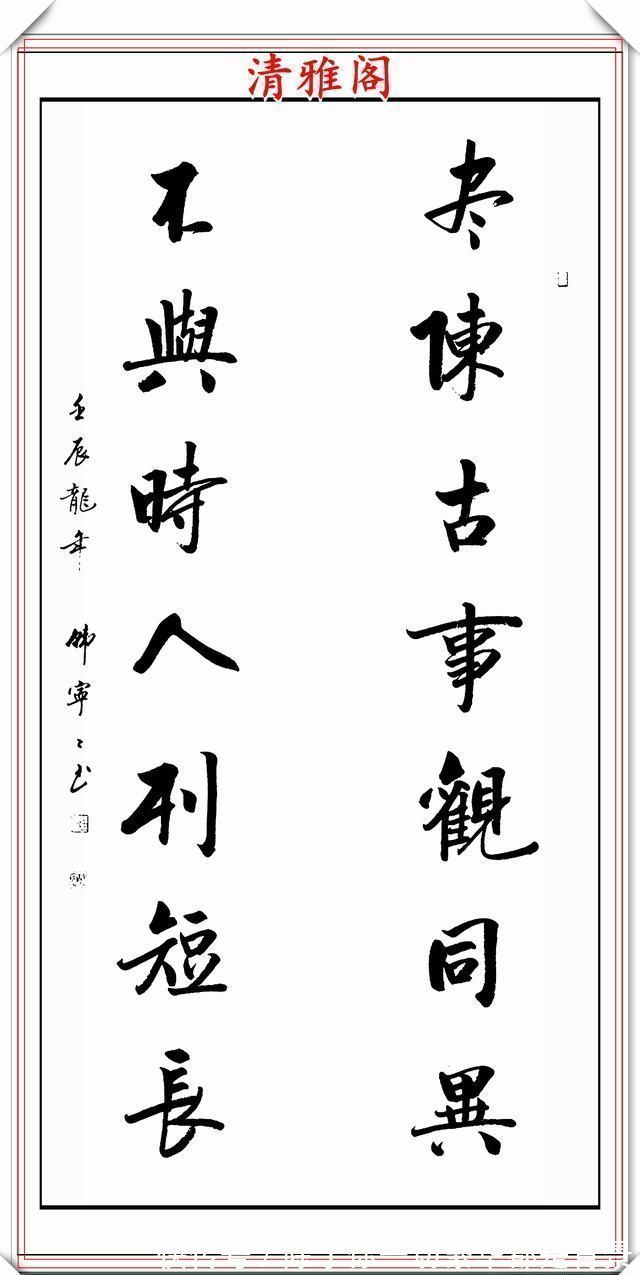 清雅阁
尽陳古事觀同異
不與時人刊短長
壬辰龍年 韩寧寧書